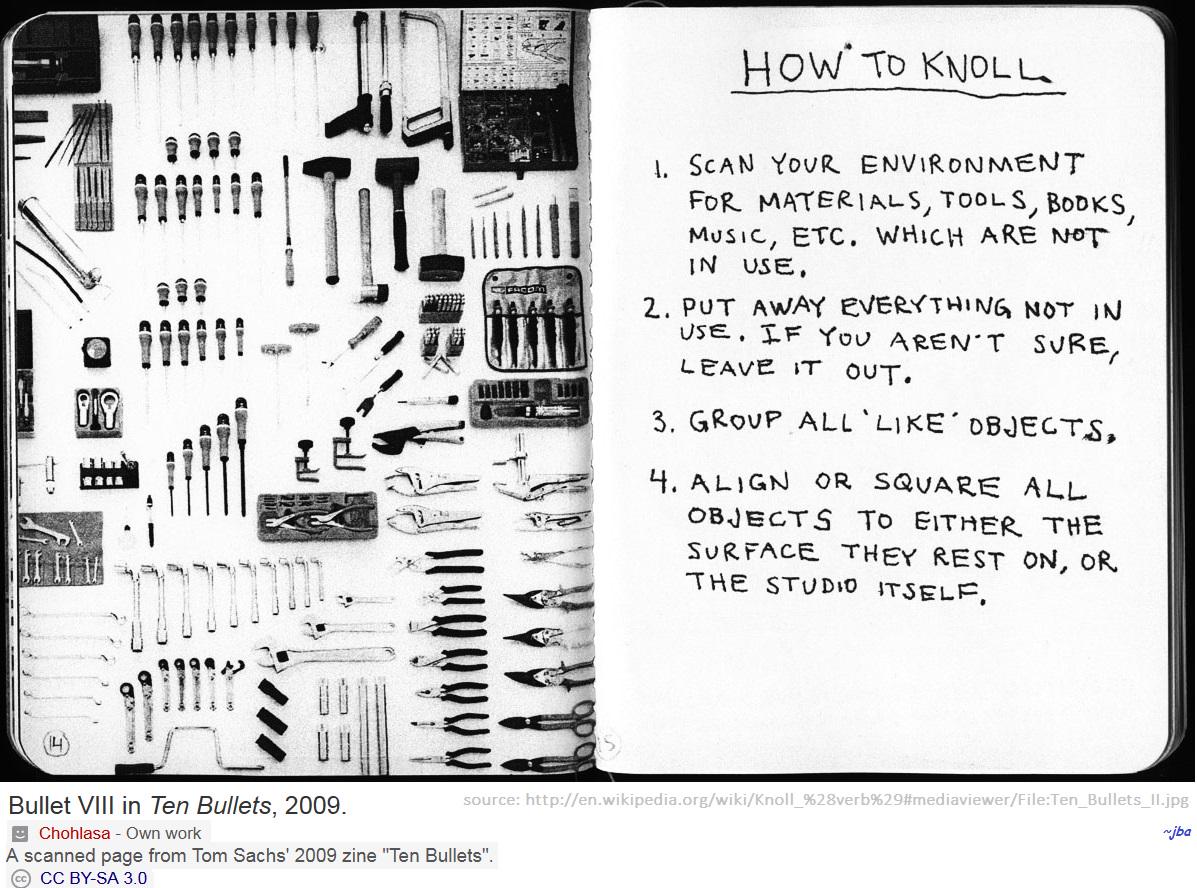 FACOM
14
HOW TO KNOLL
1. SCAN YOUR ENVIRONMENT
FOR MATERIALS, TOOLS, BOOKS,
MUSIC, ETC. WHICH ARE NOT
IN USE.
2. PUT AWAY EVERYTHING NOT IN
USE. IF YOU AREN'T SURE,
LEAVE IT OUT.
3. GROUP ALL 'LIKE' OBJECTS.
4. ALIGN OR SQUARE ALL
OBJECTS TO EITHER THE
SURFACE THEY REST ON, OR
THE STUDIO ITSELF.
Bullet VIII in Ten Bullets, 2009.
source: http://en.wikipedia.org/wiki/Knoll_%28verb%29#mediaviewer/File:Ten_Bullets_II.jpg
Chohlasa - Own work
~jba
A scanned page from Tom Sachs' 2009 zine "Ten Bullets".
cc CC BY-SA 3.0